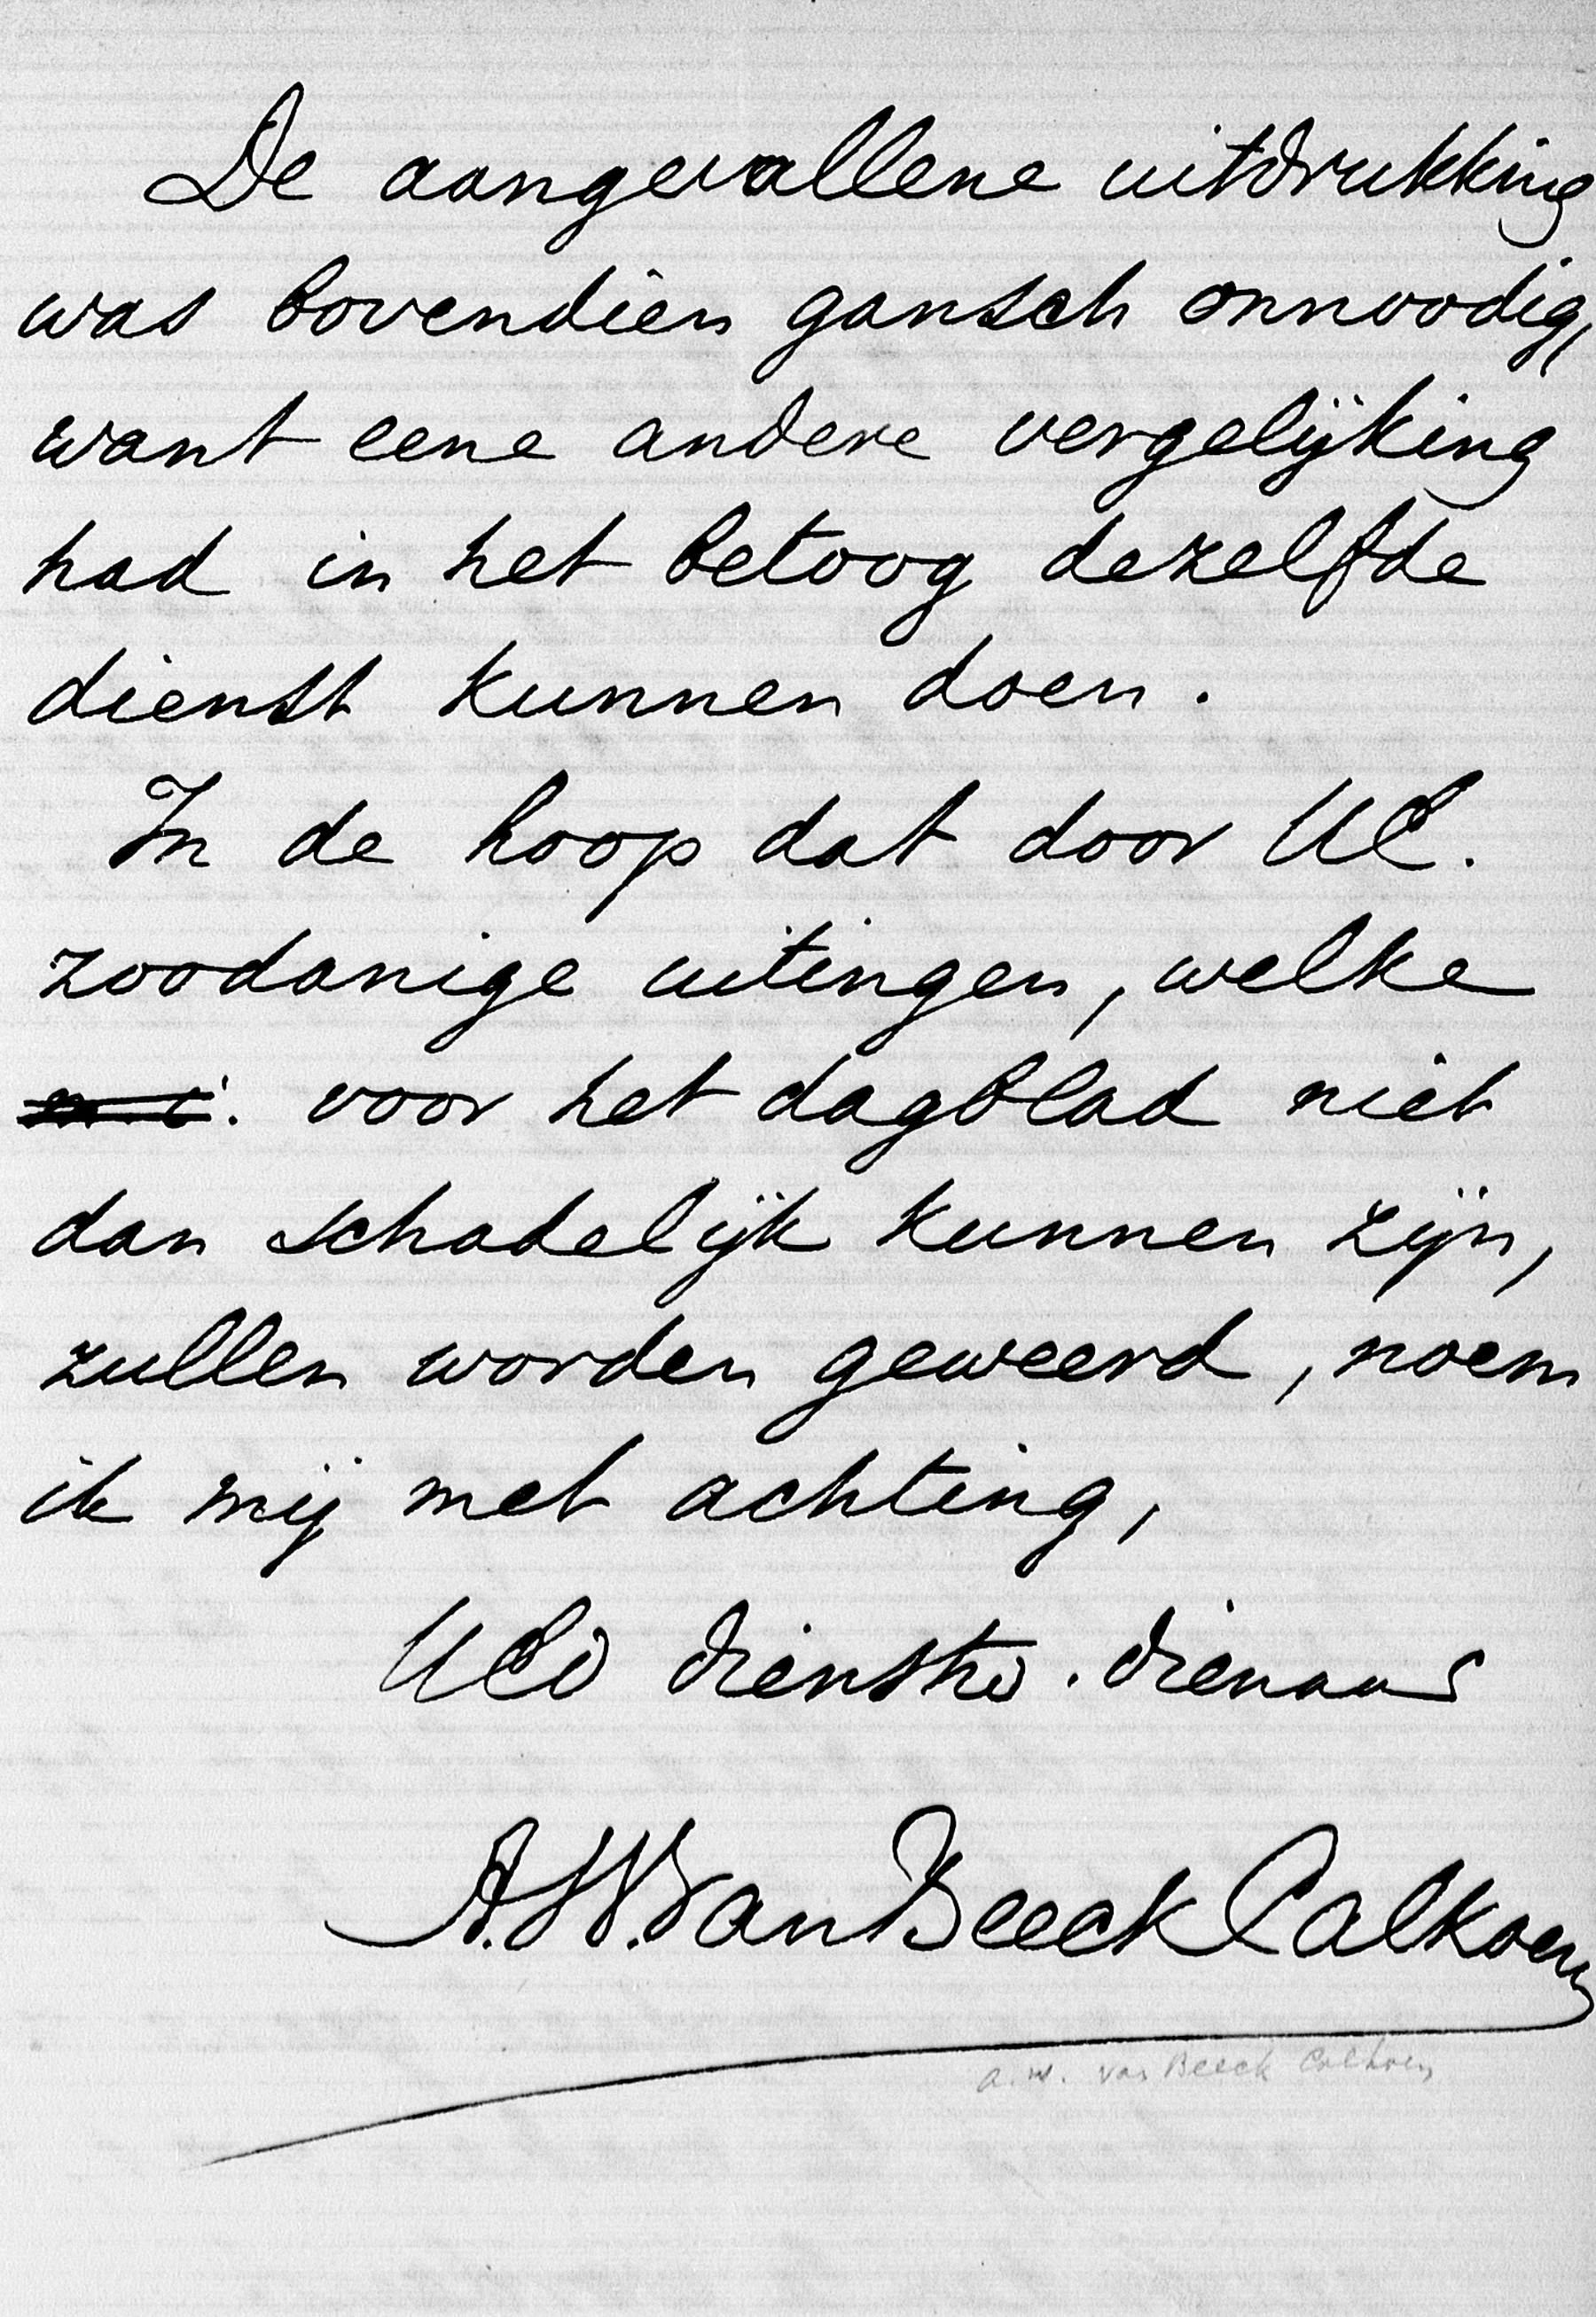 De aangevallene uitdrukking
was bovendien gansch onnoodig,
want eene andere vergelijking
had in het betoog dezelfde
dienst kunnen doen.
In de hoop dat door UE.
zoodanige uitingen, welke
m.i. voor het dagblad niet
dan schadelijk kunnen zijn,
zullen worden geweerd, noem
ik mij met achting,
UEd dienstw. dienaar
A.W. Van Beeck Calkoen
a.w. van Beeck Calkoen